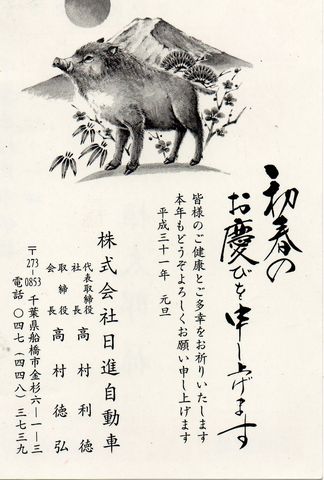 初春の
お慶びを申し上げます
皆様のご健康とご多幸をお祈りいたします
本年もどうぞよろしくお願い申し上げます
平成三十一年 元旦
株式会社日進自動車
代表取締役社長 高村利徳
取締役会長 高村徳弘
〒273-0853 千葉県船橋市金杉六-一-三
電話 〇四七(四四八)三七三九